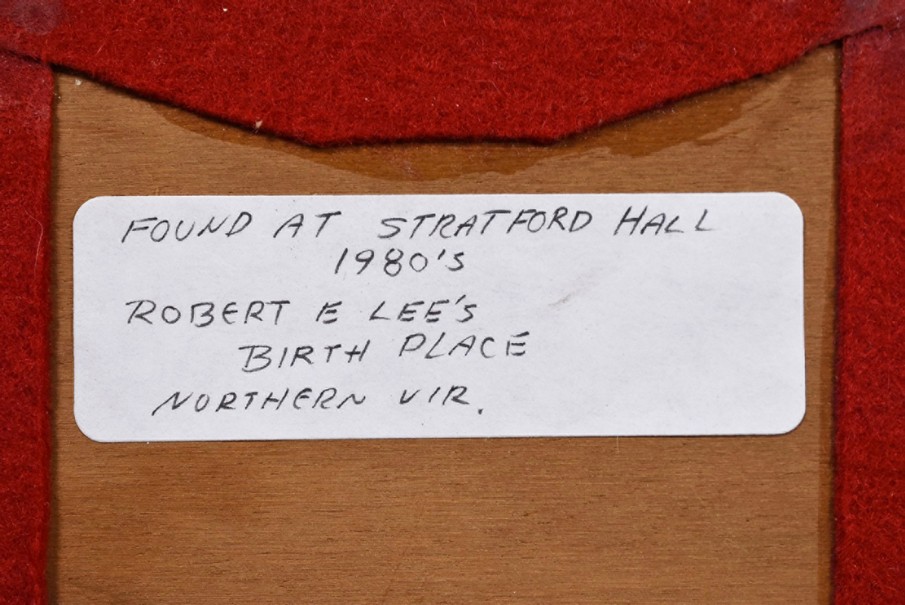 FOUND AT STRATFORD HALL
1980'S
ROBERT E LEE'S
BIRTH PLACE
NORTHERN VIR.